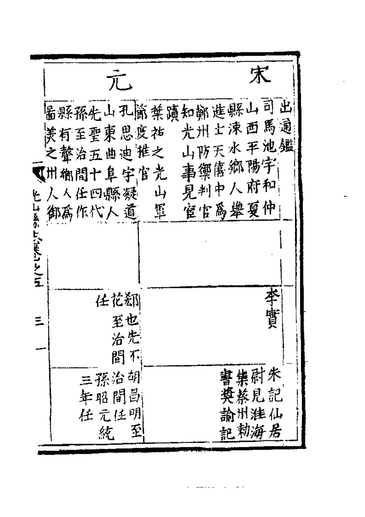 宋
出通鑑
司馬池字和仲
山西平陽府夏
縣涑水鄉人舉
進士天禧中爲
鄭州防禦判官
知光山事見宦
蹟
葉祐之光山軍
節度推官
李實
朱記仙居
尉見淮海
集蔡州勅
書獎諭記
元
孔思迪字凝道
山東曲阜縣人
先聖五十四代
孫至治間任作
縣有聲鄉人爲
圖美之州人御
鄭也先不
花至治間
任
胡昌明至
治間任
孫昭元統
三年任
光山縣志卷之五
三